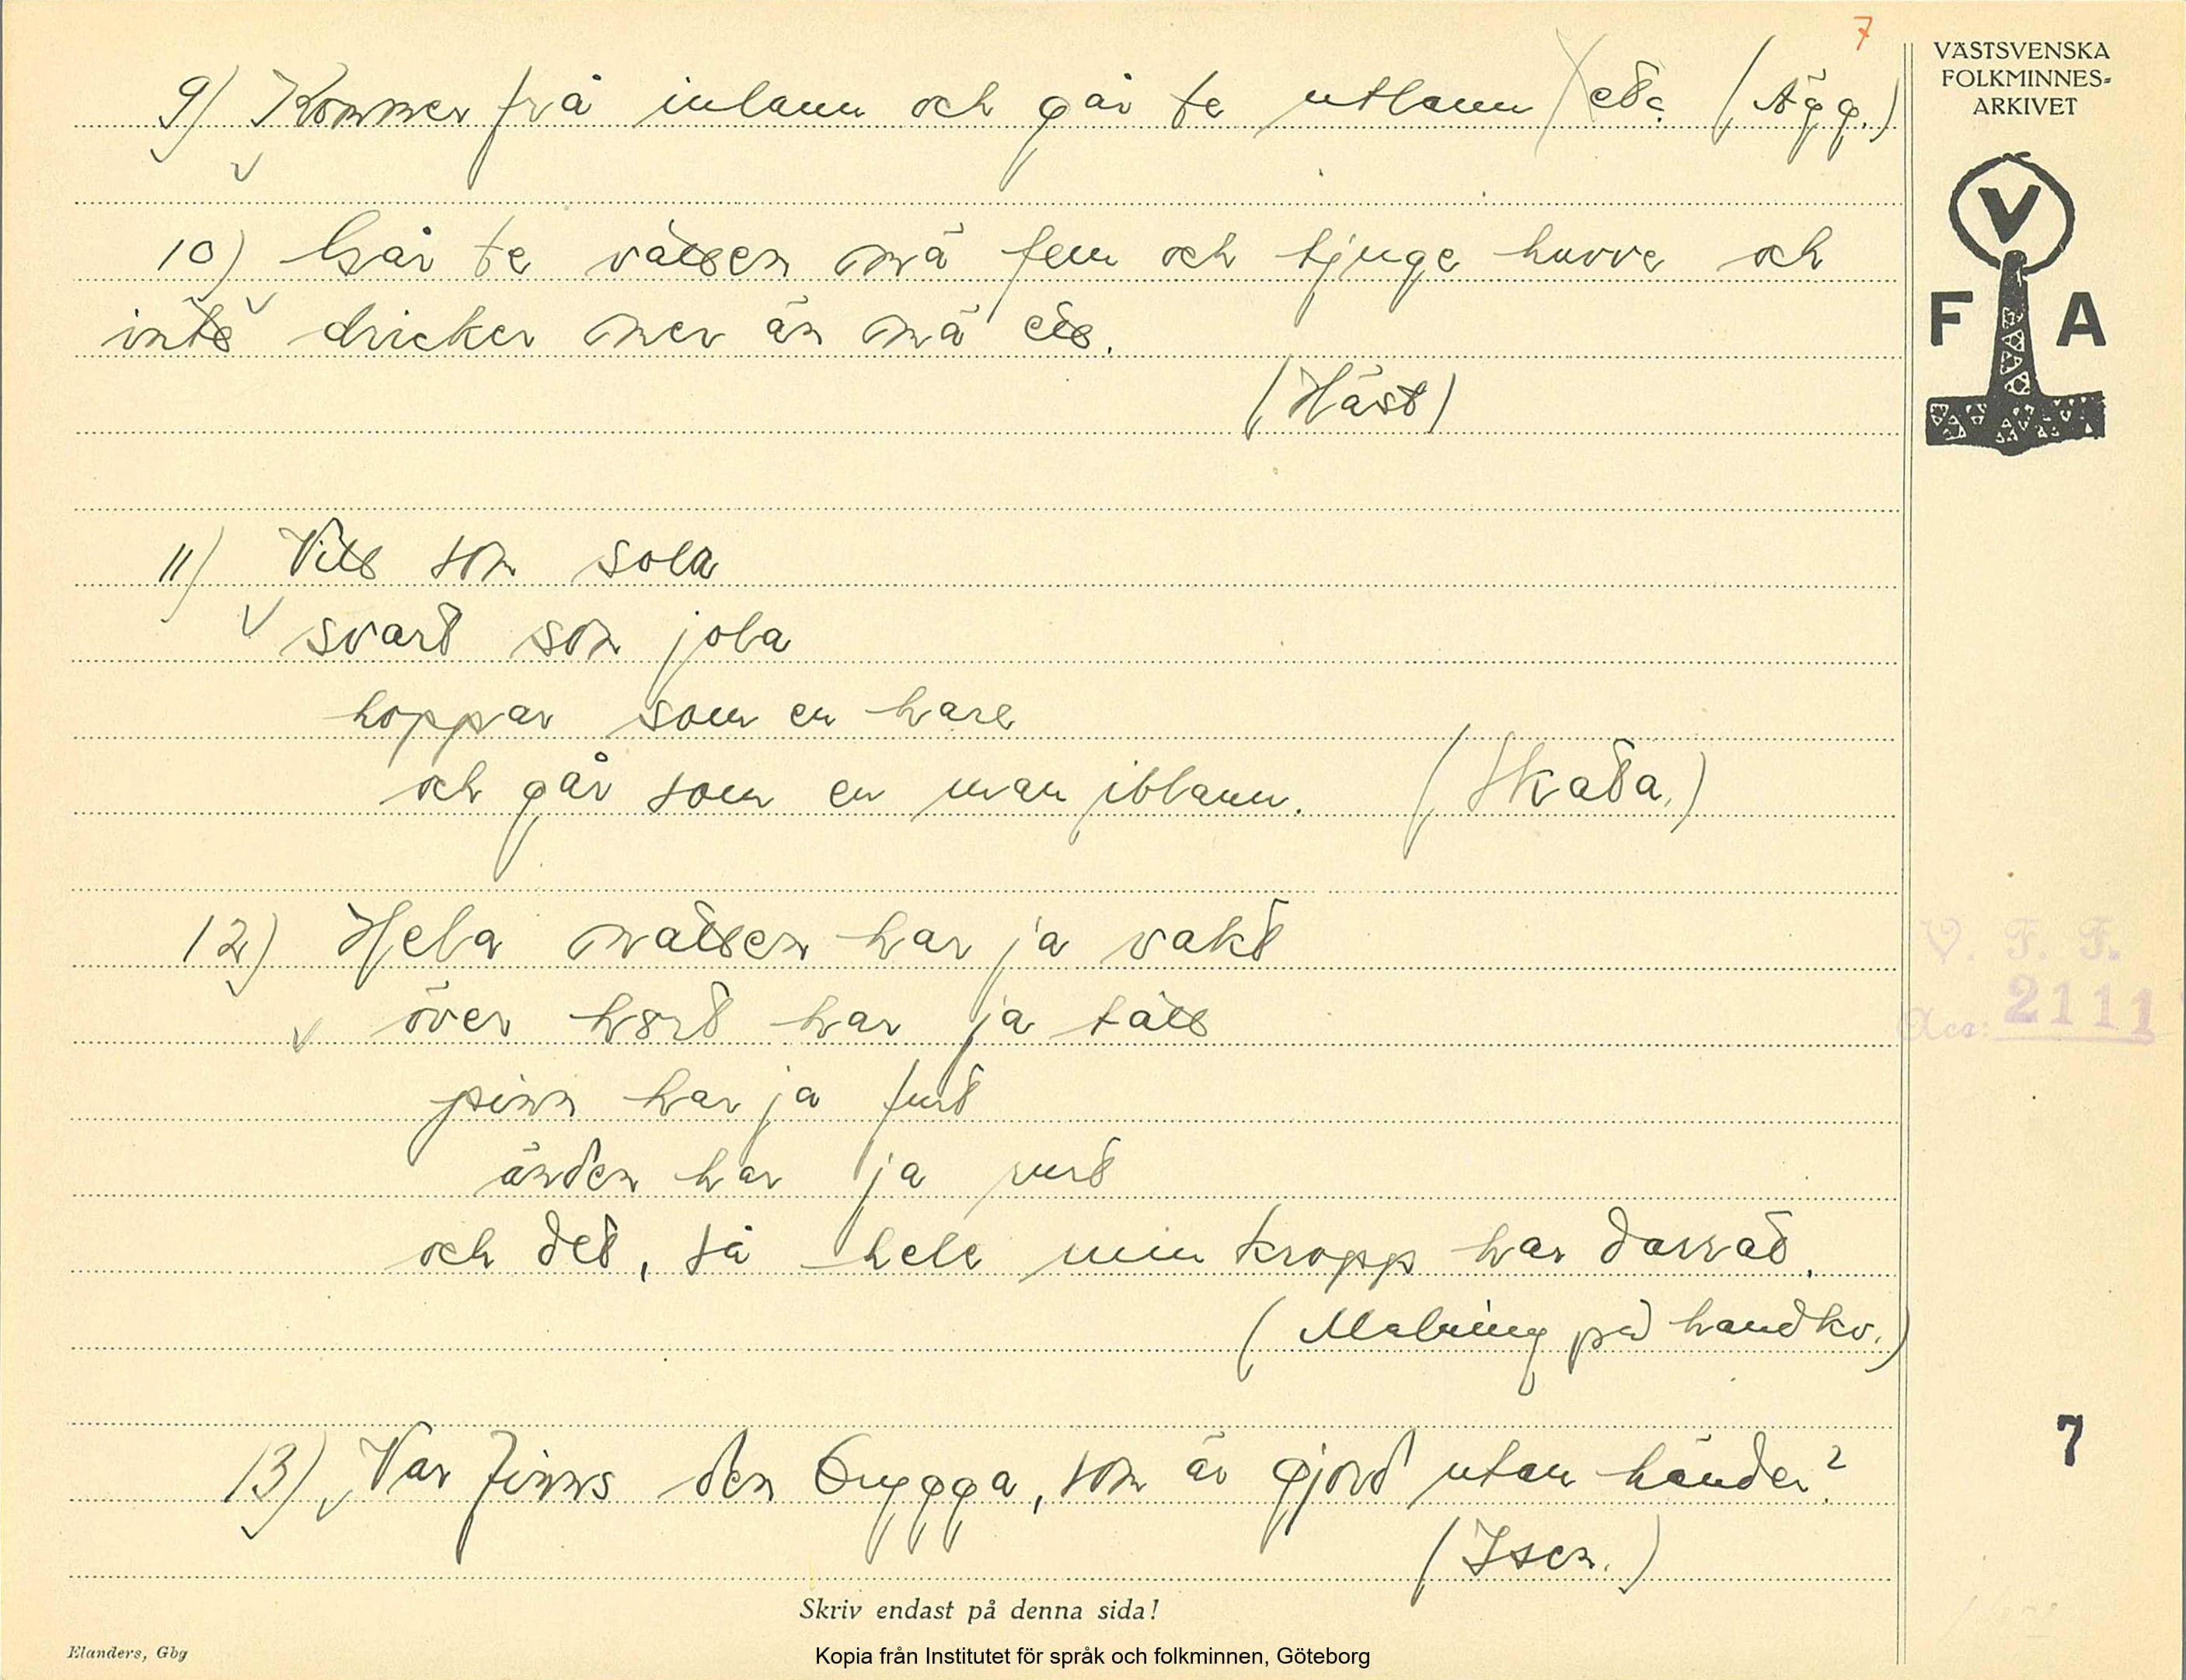 7
VÄSTSVENSKA
FOLKMINNES-
ARKIVET
V
F A
9) Kommer frå inlann och går te utlann etc. (Ägg.)
10) Går te vatten mä fem och tjuge huvve och
inte dricker mer än mä ett.
(Häst)
11) Vitt som sola
svart som jola
hoppar som en hare
och går som en man iblann. (Skata.)
12) Hela natten har ja vakt
över hort har ja satt
pinn har ja furt
änden har ja rurt
och det, så hele min kropp har darrat.
(Malning på handkv.)
13) Var finns den brygga, som är gjord utan händer?
(Isen.)
V. F. F.
Acc: 2111
7
Skriv endast på denna sida!
Elanders, Gbg
Kopia från Institutet för språk och folkminnen, Göteborg